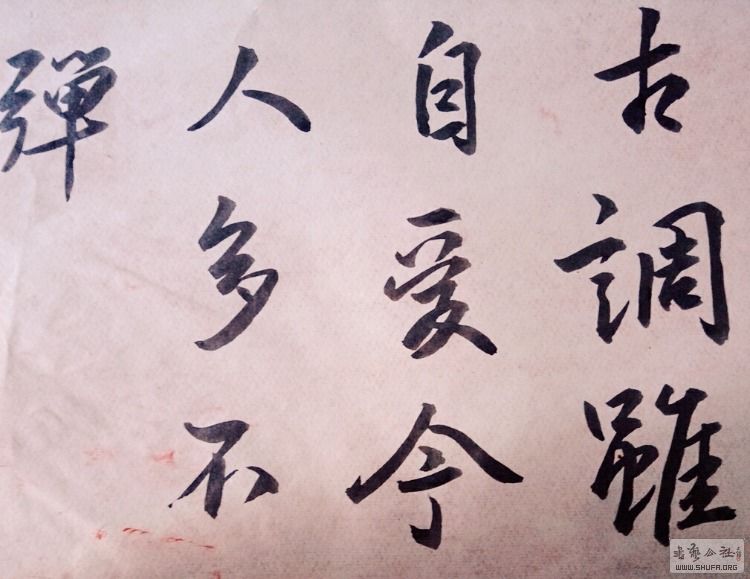 古調雖
自愛今
人多不
彈
WWW.SHUFA.ORG